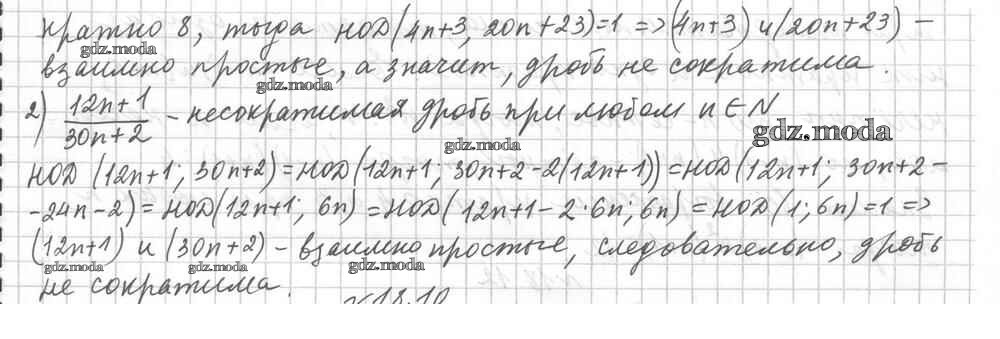 кратно 8, тогда НОД(4n+3, 20n+23)=1 => (4n+3) и (20n+23) –
взаимно простые, а значит, дробь не сократима.
2) (12n+1)/(30n+2) – несократимая дробь при любом n ∈ N
НОД (12n+1; 30n+2) = НОД(12n+1; 30n+2-2(12n+1)) = НОД(12n+1; 30n+2-
-24n-2) = НОД(12n+1; 6n) = НОД(12n+1-2·6n; 6n) = НОД(1; 6n)=1 =>
(12n+1) и (30n+2) – взаимно простые, следовательно, дробь
не сократима.
gdz.moda
gdz.moda
gdz.moda
gdz.moda
gdz.moda
gdz.moda
gdz.moda
gdz.moda
gdz.moda